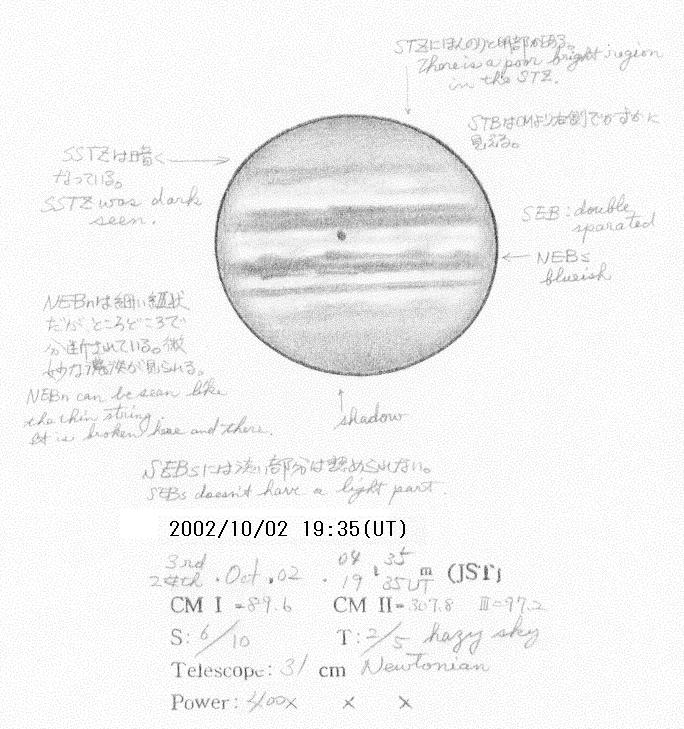 STZにほんのりと明部がある。
There is a poor bright region
in the STZ.
STBはCMより右側でかすかに
見える。
SSTZは暗く
なっている。
SSTZ was dark
seen.
SEB: double
sparated
NEBs
blueish
NEBnは細い紐状
だがところどころで
分断されている。微
妙な濃淡が見られる。
NEBn can be seen like
the thin string.
It is broken here and there.
shadow
SEBsには淡い部分は認められない。
SEBs doesn't have a light part.
2002/10/02 19:35(UT)
3rd 04 35
. Oct. 02 . 19 35UT m (JST)
CM I =89.6 CM II=307.8 III=97.2
S: 6/10 T: 2/5 hazy sky
Telescope: 31 cm Newtonian
Power: 400x x x